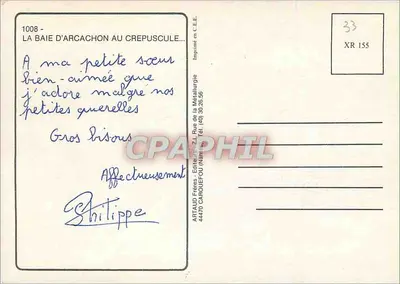 1008 -
LA BAIE D'ARCACHON AU CREPUSCULE...
A ma petite sœur
bien-aimée que
j'adore malgré nos
petites querelles
Gros bisous
Affectueusement
Philippe
CPAPHIL
ARTAUD Frères - Editeurs, Rue de la Métallurgie
44470 CARQUEFOU Tél. (40) 30.26.56
Imprimé en C.E.E.
33
XR 155